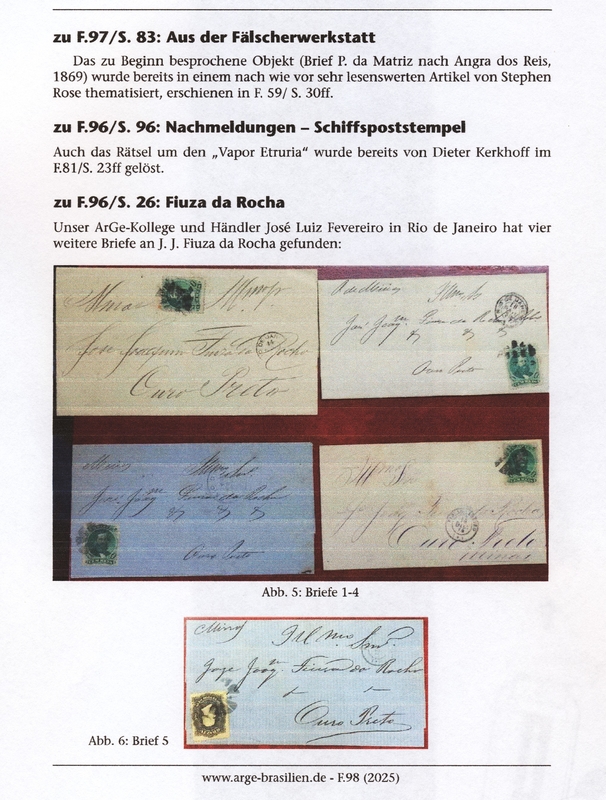 zu F.97/S. 83: Aus der Fälscherwerkstatt
Das zu Beginn besprochene Objekt (Brief P. da Matriz nach Angra dos Reis,
1869) wurde bereits in einem nach wie vor sehr lesenswerten Artikel von Stephen
Rose thematisiert, erschienen in F. 59/ S. 30ff.
zu F.96/S. 96: Nachmeldungen – Schiffspoststempel
Auch das Rätsel um den „Vapor Etruria“ wurde bereits von Dieter Kerkhoff im
F.81/S. 23ff gelöst.
zu F.96/S. 26: Fiuza da Rocha
Unser ArGe-Kollege und Händler José Luiz Fevereiro in Rio de Janeiro hat vier
weitere Briefe an J. J. Fiuza da Rocha gefunden:
Jose Joaquim Fiuza da Rocha
Ouro Preto
Fiuza da Rocha
Ouro Preto
Fiuza da Rocha
Ouro Preto
da Rocha
Ouro Preto
Abb. 5: Briefe 1-4
Fiuza da Rocha
Ouro Preto
Abb. 6: Brief 5
www.arge-brasilien.de - F.98 (2025)